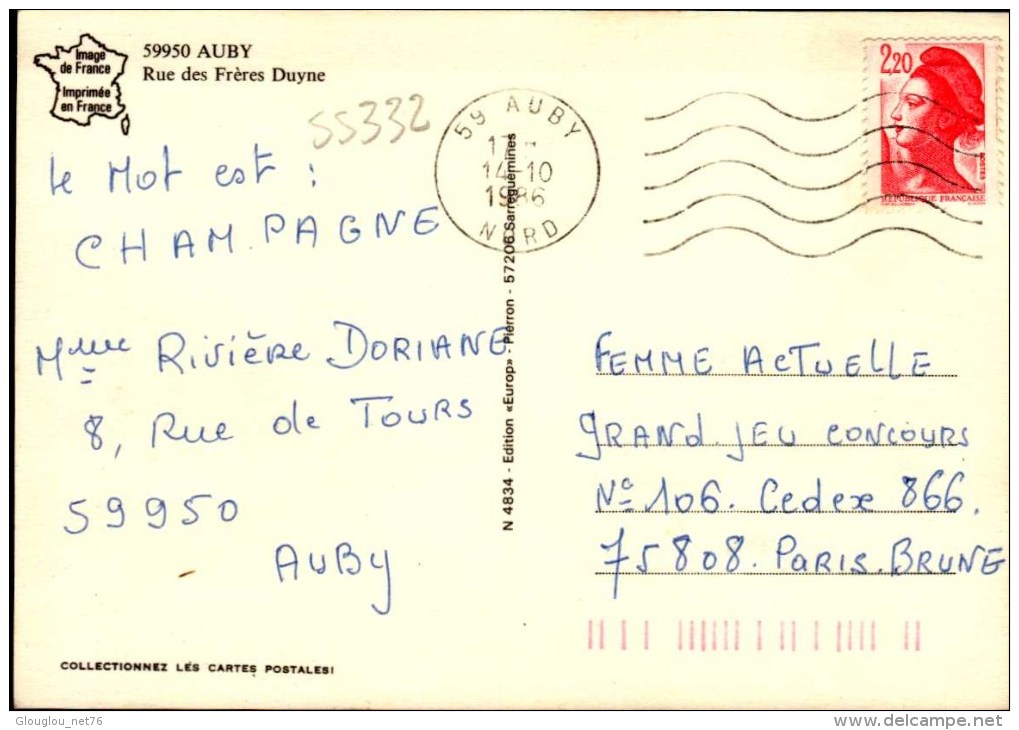 Image
de France
Imprimée
en France
59950 AUBY
Rue des Frères Duyne
55332
59 AUBY
17 -
14-10
1986
NORD
2,20
POSTES
REPUBLIQUE FRANÇAISE
le Mot est :
CHAM.PAGNE
Mme Rivière DORIANE
8, Rue de Tours
59950
AuBy
N 4834 - Edition «Europ» - Pierron - 57206 Sarreguemines
FEMME ACTUELLE
GRAND JEU CONCOURS
N° 106. Cedex 866.
75808. PARIS.BRUNE
COLLECTIONNEZ LES CARTES POSTALES!
Glouglou_net76
www.delcampe.net